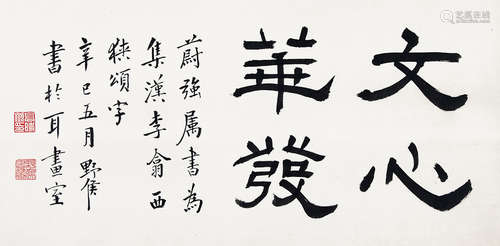 文心
華發
蔚強属書為
集漢李翕西
狹頌字
辛巳五月野侯
書於耳畫室